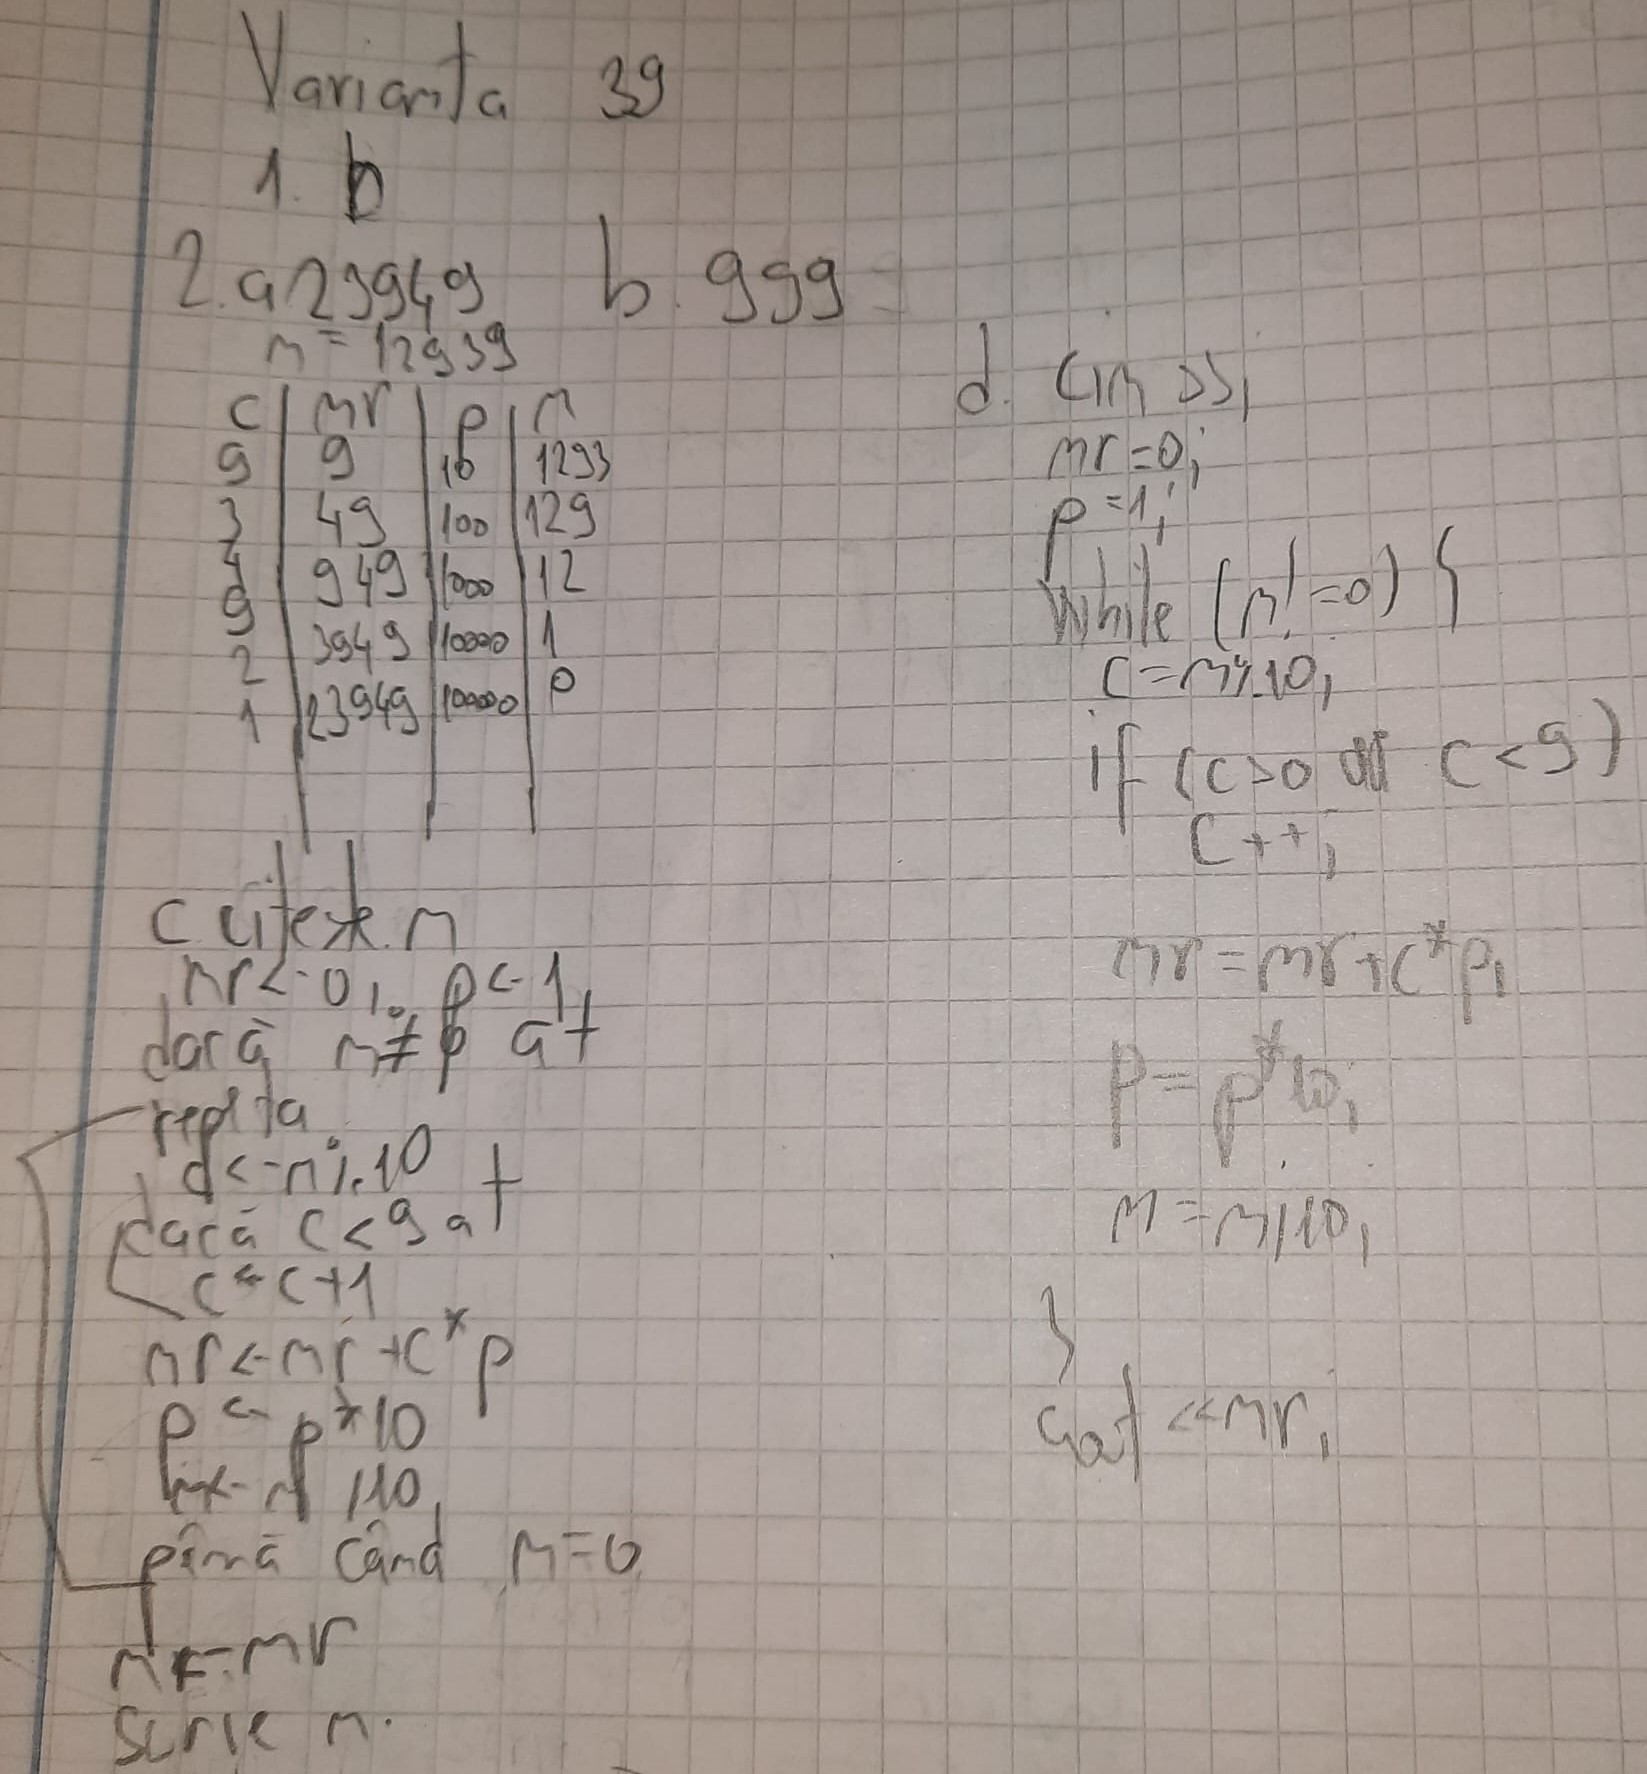 Varianta 39
1. b
2. a 23949 b. 999
n = 12939
c | nr | p | n
9 | 9 | 10 | 1293
3 | 49 | 100 | 129
4
9 | 949 | 1000 | 12
2 | 3949 | 10000 | 1
1 | 23949 | 100000 | 0
c citește n
nr <- 0; p <- 1
dacă n ≠ 0 at
repetă
c <- n % 10
dacă c < 9 at
c <- c + 1
nr <- nr + c * p
p <- p * 10
n <- n / 10
până când n = 0
n <- nr
scrie n.
d. cin >>
nr = 0;
p = 1;
while (n != 0) {
c = n % 10;
if (c > 0 && c < 9)
c++;
nr = nr + c * p;
p = p * 10;
n = n / 10;
}
cout << nr;